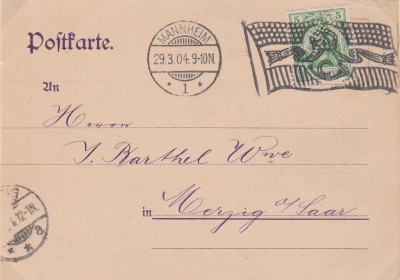 Postkarte.
MANNHEIM
29.3.04.9-10N.
* 1 *
5 5
An
Herrn
J. Barthel Wwe
in Merzig a/Saar
12-1N.
* a